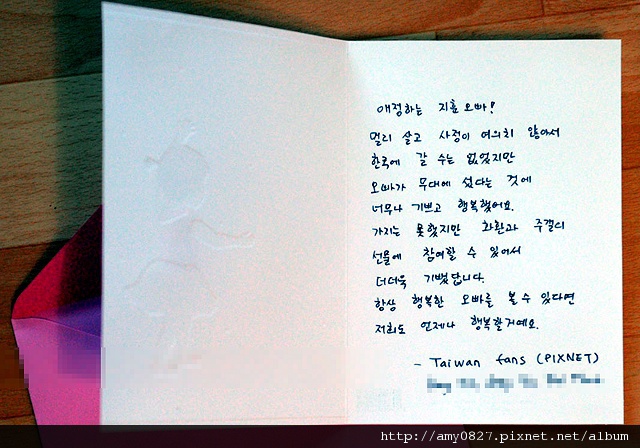 애정하는 지훈오빠!
멀리 살고 사정이 여의치 않아서
한국에 갈 수는 없었지만
오빠가 무대에 섰다는 것에
너무나 기쁘고 행복했어요.
가지는 못했지만 화환과 주갤디
선물에 참여할 수 있어서
더더욱 기뻤답니다.
항상 행복한 오빠를 볼 수 있다면
저희도 언제나 행복할거예요.
- Taiwan fans (PIXNET)
http://amy0827.pixnet.net/album